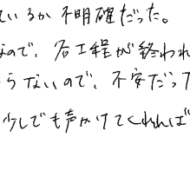 ているか不明確だった。
なので、各工程が終われ
らないので、不安だった
少しでも声かけてくれれば